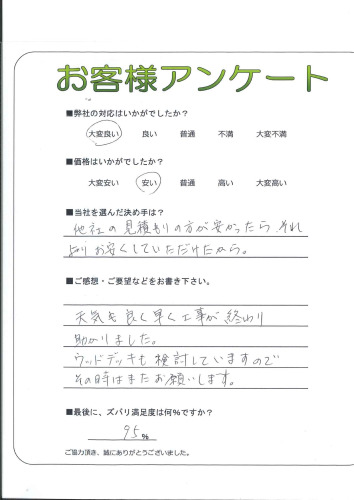 お客様アンケート
■弊社の対応はいかがでしたか？
大変良い 良い 普通 不満 大変不満
■価格はいかがでしたか？
大変安い 安い 普通 高い 大変高い
■当社を選んだ決め手は？
他社の見積もりの方が安かったら、それ
よりお安くしていただけたから。
■ご感想・ご要望などをお書き下さい。
天気も良く早く工事が終わり
助かりました。
ウッドデッキも検討していますので
その時はまたお願いします。
■最後に、ズバリ満足度は何%ですか？
95%
ご協力頂き、誠にありがとうございました。